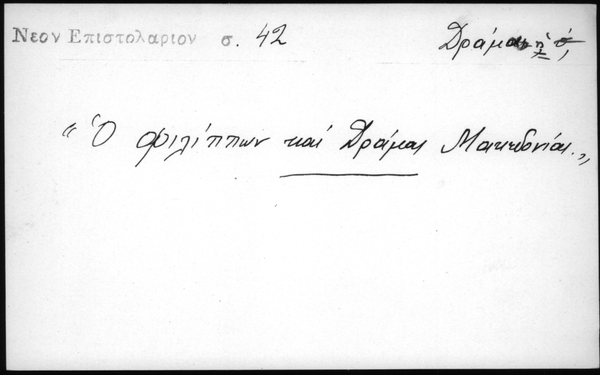 Νεον Επιστολαριον σ. 42 Δράμα ἡ
“Ὁ Φιλίππων καί Δράμας Μακεδονίας.„